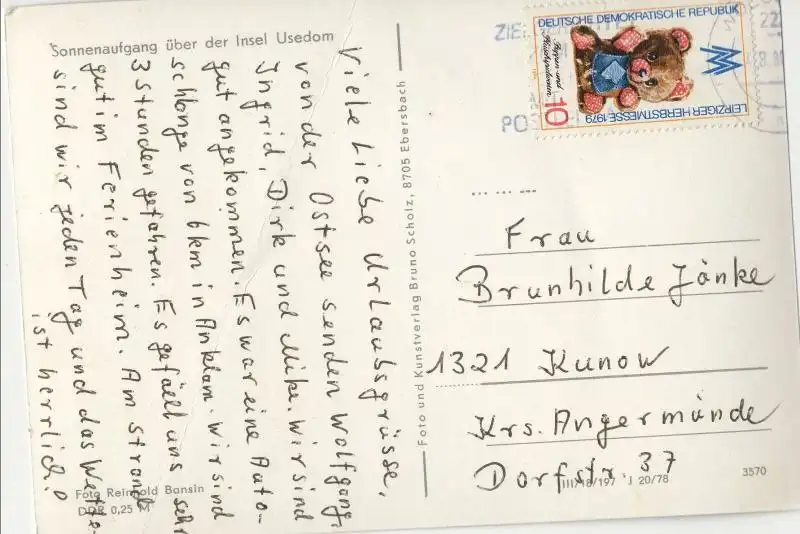 Sonnenaufgang über der Insel Usedom
Viele liebe Urlaubsgrüsse,
von der Ostsee senden Wolfgang,
Ingrid, Dirk und Mike. Wir sind
gut angekommen. Es war eine Auto-
schlange von 6km in Anklam. Wir sind
3 Stunden gefahren. Es gefäellt uns sehr
gut im Ferienheim. Am Strand
sind wir jeden Tag und das Wetter
ist herrlich.
Foto Reinhold Bansin
DDR 0,25 M
Foto und Kunstverlag Bruno Scholz, 8705 Ebersbach
DEUTSCHE DEMOKRATISCHE REPUBLIK
Puppen und
10
LEIPZIGER HERBSTMESSE 1979
Frau
Brunhilde Jänke
1321 Kunow
Krs. Angermünde
Dorfstr. 37
III/18/197 J 20/78
3570